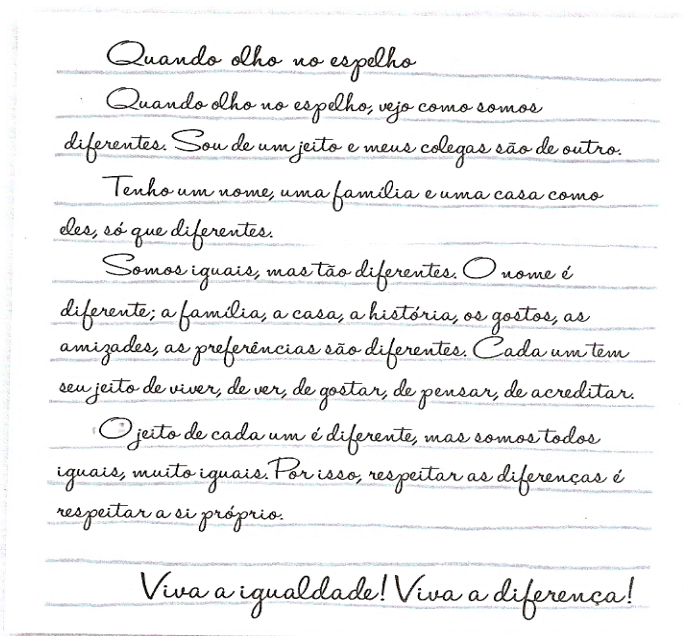 Quando olho no espelho
Quando olho no espelho, vejo como somos
diferentes. Sou de um jeito e meus colegas são de outro.
Tenho um nome, uma família e uma casa como
eles, só que diferentes.
Somos iguais, mas tão diferentes. O nome é
diferente; a família, a casa, a história, os gostos, as
amizades, as preferências são diferentes. Cada um tem
seu jeito de viver, de ver, de gostar, de pensar, de acreditar.
O jeito de cada um é diferente, mas somos todos
iguais, muito iguais. Por isso, respeitar as diferenças é
respeitar a si próprio.
Viva a igualdade! Viva a diferença!